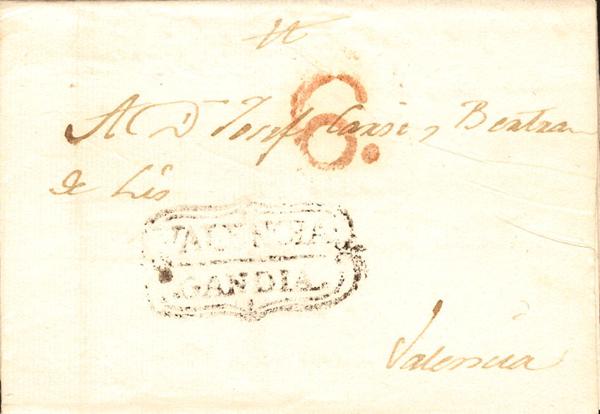 6.
A Dn Josef Causi y Beltran
de Lis
VALENCIA
GANDIA.
Valencia